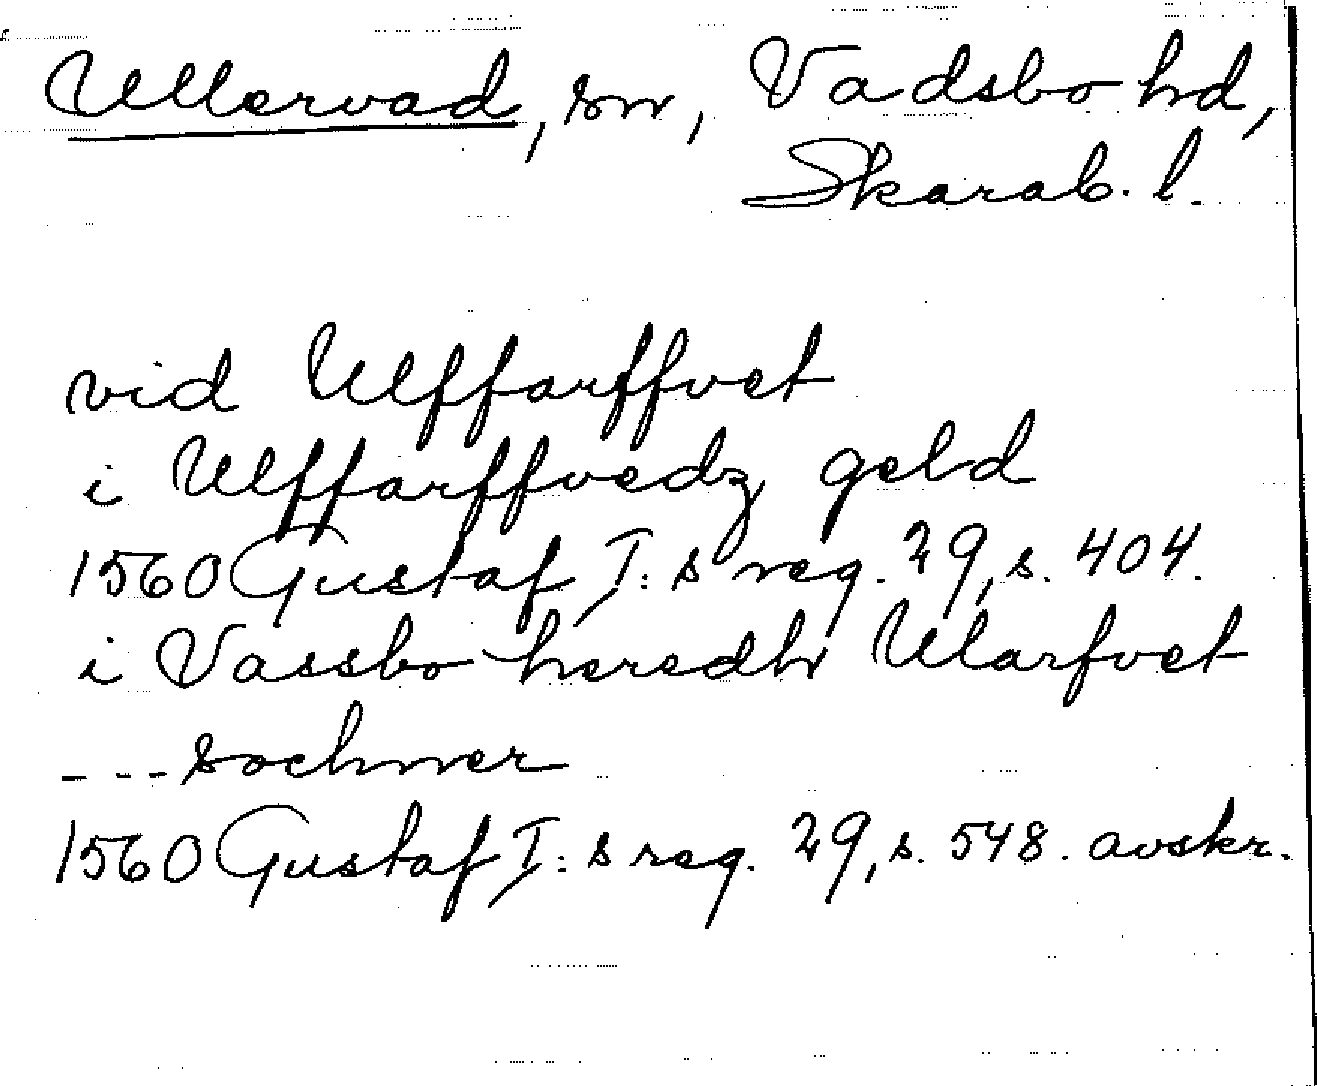 Ullervad, sn, Vadsbo hd,
Skarab. l.
vid Ulffarffvet
i Ulffarffvedz geld
1560 Gustaf I: s reg. 29, s. 404.
i Vassbo heredh Ularfvet
--- sochner
1560 Gustaf I: s reg. 29, s. 548. avskr.